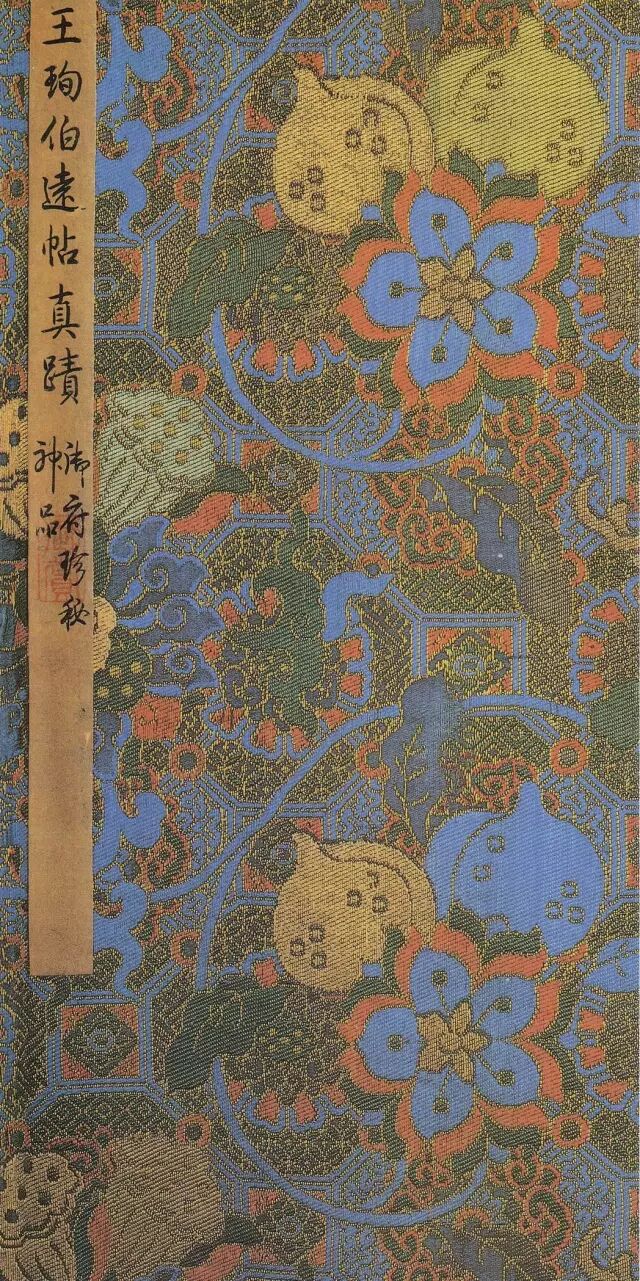 王珣伯遠帖真蹟
御府珍秘
神品